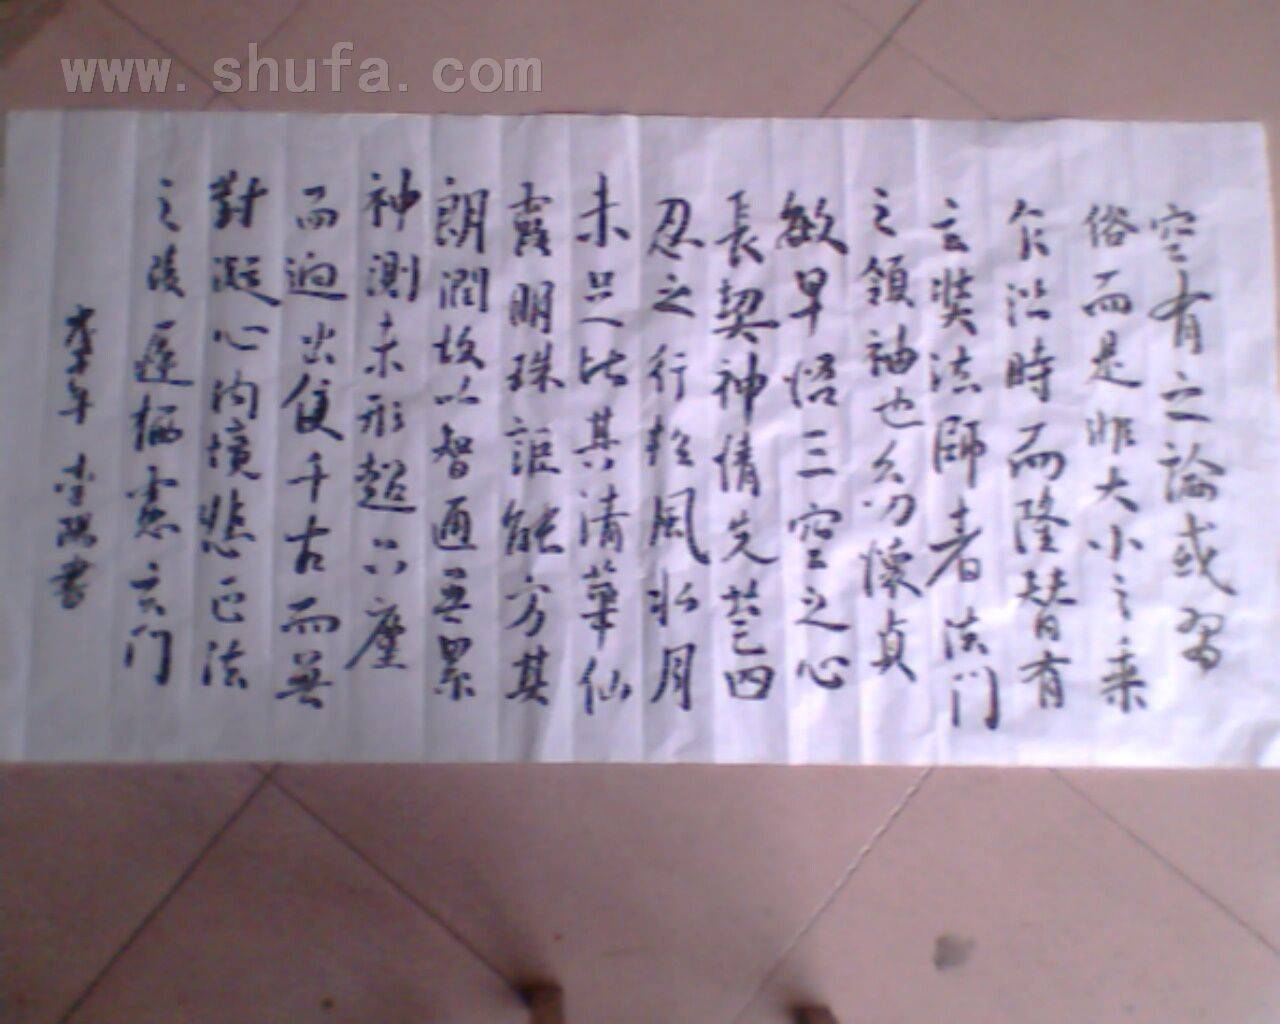 www.shufa.com
空有之論或習
俗而是非大小之乘
乍沿時而隆替有
玄奘法師者法門
之領袖也幼懷貞
敏早悟三空之心
長契神情先苞四
忍之行松風水月
未足比其清華仙
露明珠詎能方其
朗潤故以智通無累
神測未形超六塵
而迥出隻千古而無
對凝心內境悲正法
之陵遲栖慮玄門
年 書